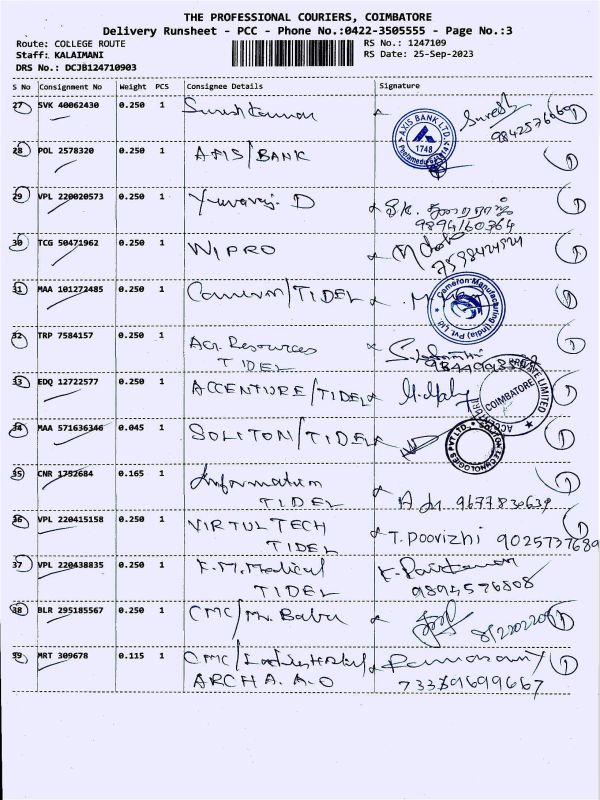 THE PROFESSIONAL COURIERS, COIMBATORE
Delivery Runsheet - PCC - Phone No.:0422-3505555 - Page No.:3
Route: COLLEGE ROUTE RS No.: 1247109
Staff: KALAIMANI RS Date: 25-Sep-2023
DRS No.: DCJB124710903
S No Consignment No Weight PCS Consignee Details Signature
27 SVK 40062430 0.250 1 Sureshkumar Suresh
AXIS BANK LTD. 1748
28 POL 2578320 0.250 1 AXIS/BANK
29 VPL 220020573 0.250 1 Yuvaraj. D
9894160364
30 TCG 50471962 0.250 1 WIPRO
31 MAA 101272485 0.250 1 Cameron/TIDEL
Cameron Manufacturing (India) Pvt. Ltd.
32 TRP 7584157 0.250 1 AGR Resources
TIDEL
33 EDQ 12722577 0.250 1 ACCENTURE/TIDEL
PRIVATE LIMITED COIMBATORE
34 MAA 571636346 0.045 1 SOLITON/TIDEL
SOLITON TECHNOLOGIES PVT LTD.
35 CNR 1752684 0.165 1 Information
TIDEL 9677830639
36 VPL 220415158 0.250 1 VIRTUL TECH T. Poovizhi 9025737689
TIDEL
37 VPL 220438835 0.250 1 K.M. Medical
TIDEL 9894576808
38 BLR 295185567 0.250 1 CMC/Mr. Babu
39 MRT 309678 0.115 1 CMC/ Ramasamy
ARCHA. A.O